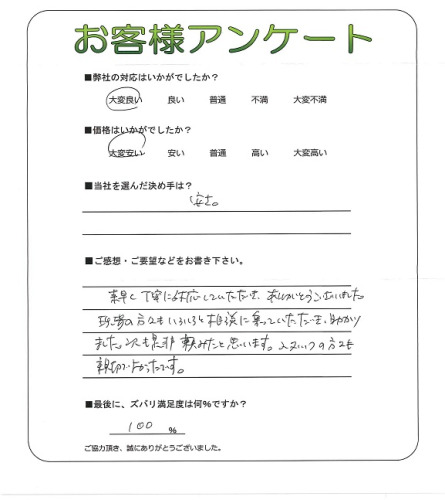 お客様アンケート
■弊社の対応はいかがでしたか？
大変良い 良い 普通 不満 大変不満
■価格はいかがでしたか？
大変安い 安い 普通 高い 大変高い
■当社を選んだ決め手は？
安さ。
■ご感想・ご要望などをお書き下さい。
素早く丁寧に対応していただき、ありがとうございました。
現場の方々もいろいろと相談に乗っていただき、助かり
ました。次も是非頼みたいと思います。の方も
親切でよかったです。
■最後に、ズバリ満足度は何%ですか？
100 %
ご協力頂き、誠にありがとうございました。